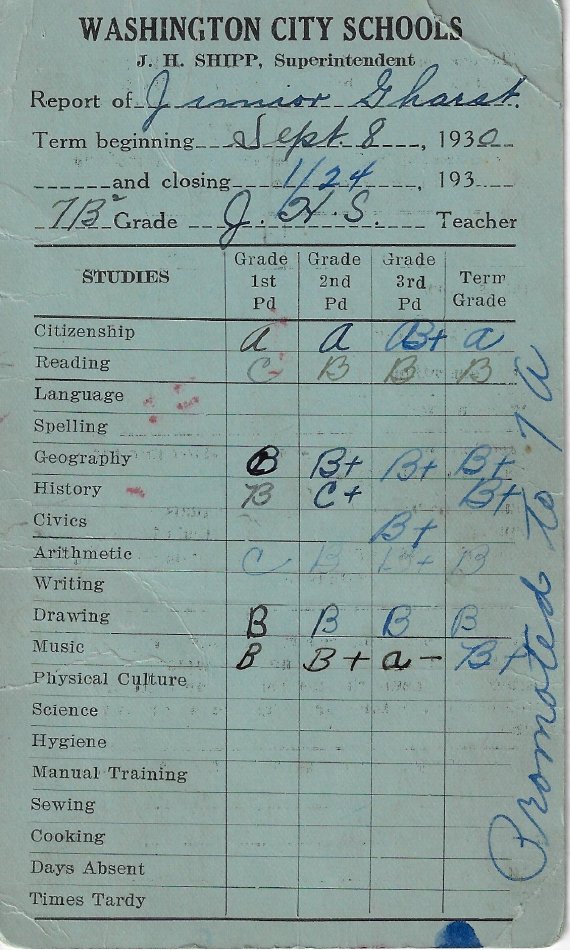 WASHINGTON CITY SCHOOLS
J. H. SHIPP, Superintendent
Report of Junior Gharst.
Term beginning Sept. 8, 1930
and closing 1/24, 193
7B² Grade J. H. S. Teacher
STUDIES Grade 1st Pd Grade 2nd Pd Grade 3rd Pd Term Grade
Citizenship A A B+ A
Reading C- B B B
Language
Spelling
Geography B B+ B+ B+
History B C+ B+
Civics B+
Arithmetic C B B+ B
Writing
Drawing B B B B
Music B B+ A- B+
Physical Culture
Science
Hygiene
Manual Training
Sewing
Cooking
Days Absent
Times Tardy
Promoted to 7A